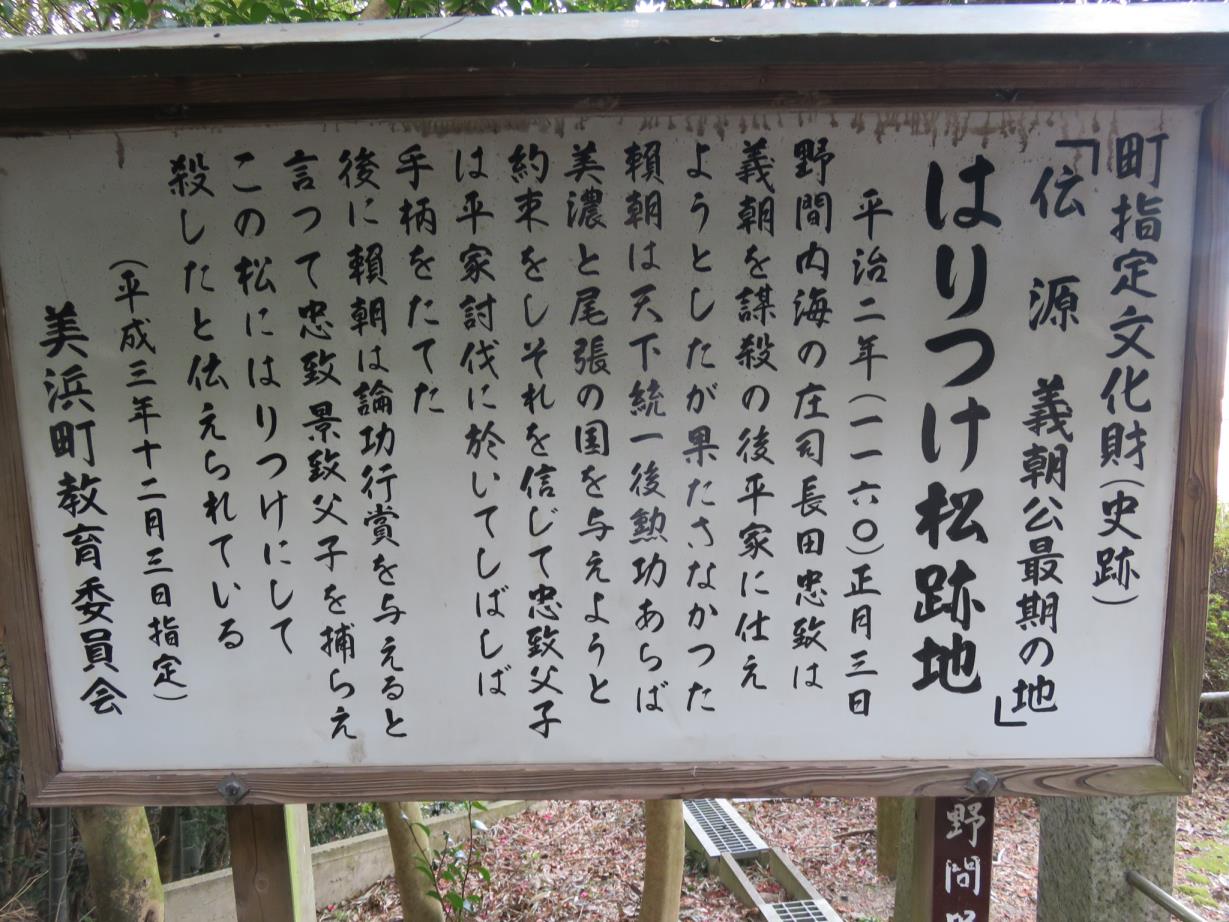 町指定文化財(史跡)
「伝 源 義朝公最期の地」
はりつけ松跡地
平治二年(一一六〇)正月三日
野間内海の庄司長田忠致は
義朝を謀殺の後平家に仕え
ようとしたが果たさなかつた
頼朝は天下統一後勲功あらば
美濃と尾張の国を与えようと
約束をしそれを信じて忠致父子
は平家討伐に於いてしばしば
手柄をたてた
後に頼朝は論功行賞を与えると
言つて忠致景致父子を捕らえ
この松にはりつけにして
殺したと伝えられている
(平成三年十二月三日指定)
美浜町教育委員会
野間